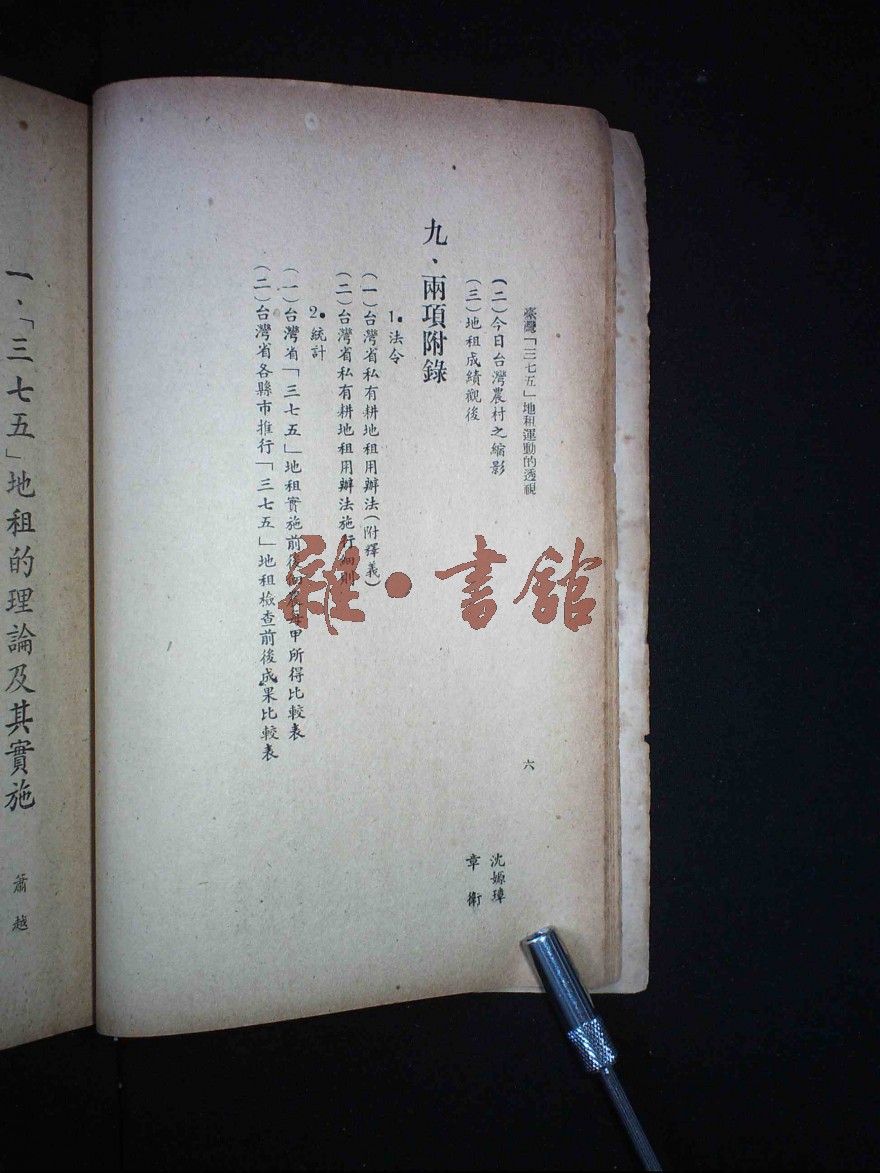 臺灣「三七五」地租運動的透視
六
(二)今日台灣農村之縮影
沈嫄璋
(三)地租成績觀後
章衝
九、兩項附錄
1.法令
(一)台灣省私有耕地租用辦法(附釋義)
(二)台灣省私有耕地租用辦法施行細則
2.統計
(一)台灣省「三七五」地租實施前後 每甲所得比較表
(二)台灣省各縣市推行「三七五」地租檢查前後成果比較表
一.「三七五」地租的理論及其實施
蕭越
雜·書館